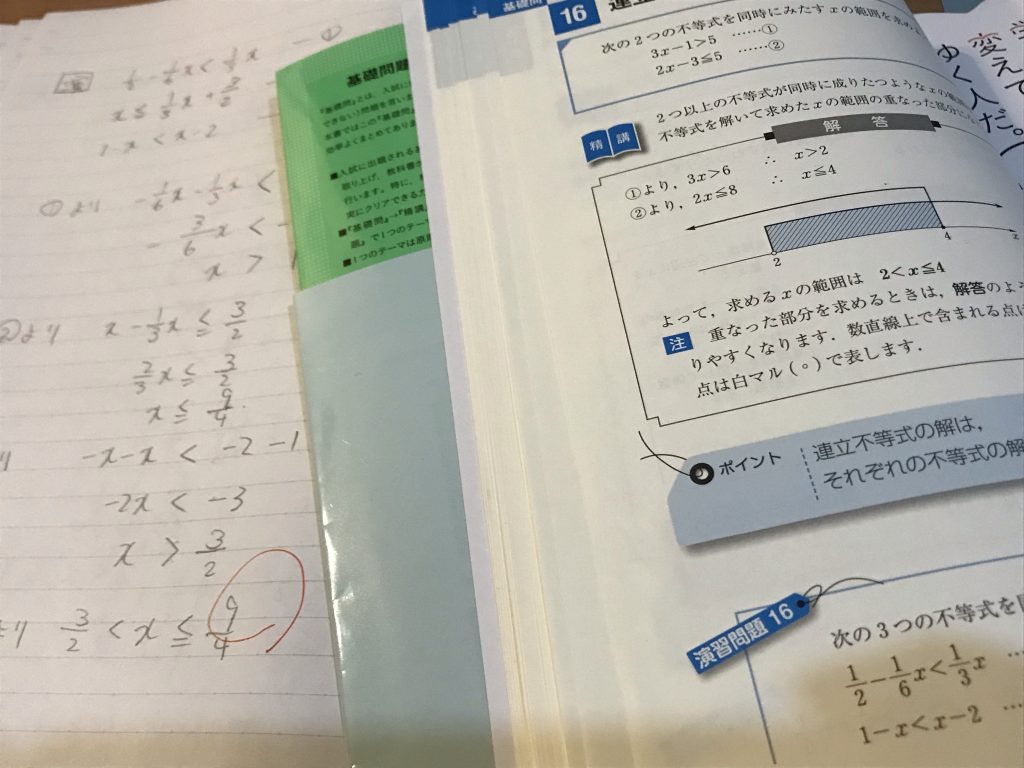 x ≦ 1/3 x + 3/2
①より
- 3/6 x <
x >
②より x - 1/3 x ≦ 3/2
2/3 x ≦ 3/2
x ≦ 9/4
-x-x < -2-1
-2x < -3
x > 3/2
3/2 < x ≦ 9/4
基礎問題
『基礎問』とは，入試に
できない)問題を言いま
■入試に出題される基
取り上げ，教科書か
行います。特に，
実にクリアできるだ
■『基礎問』→『精講』
題』で1つのテー
■1つのテーマは原則
基礎問
16 連立
次の2つの不等式を同時にみたすxの範囲を求め
3x−1>5 ……①
2x−3≦5 ……②
精講
2つ以上の不等式が同時に成りたつようなxの範囲
不等式を解いて求めたxの範囲の重なった部分に
解答
①より，3x>6 ∴ x>2
②より，2x≦8 ∴ x≦4
2 4 x
よって，求めるxの範囲は 2<x≦4
注 重なった部分を求めるときは，解答のよう
りやすくなります．数直線上で含まれる点は
点は白マル(○)で表します．
ポイント
連立不等式の解は，
それぞれの不等式の解
演習問題 16
次の3つの不等式を同
1/2 − 1/6 x < 1/3 x …
1−x<x−2 …
変えて
ゆく人だ。